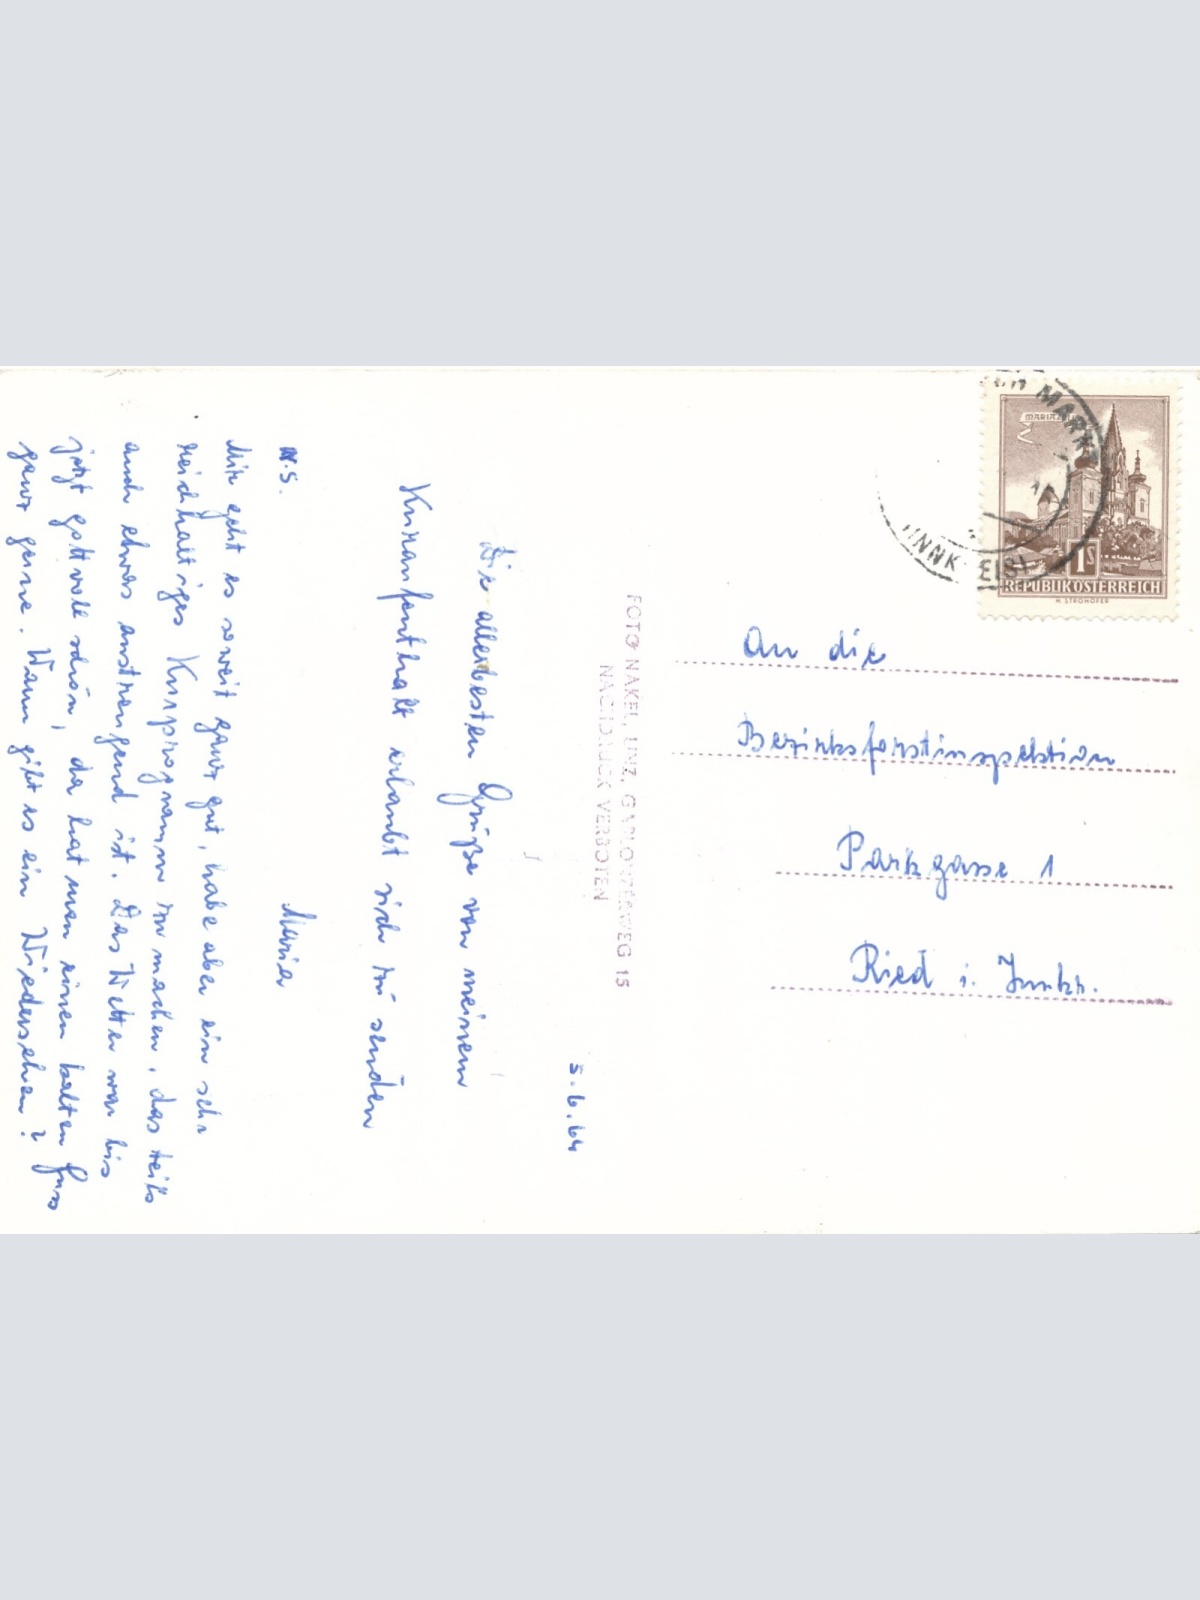 5.6.64
Die allerbesten Grüße von meinem
Kuraufenthalt erlaubt sich zu senden
Maria
N.S.
Mir geht es soweit ganz gut, habe aber ein sehr
reichhaltiges Kurprogramm zu machen, das teils
auch etwas anstrengend ist. Das Wetter war bis
jetzt gottvoll schön, da hat man einen kalten Guss
ganz gerne. Wann gibt es ein Wiedersehen?
FOTO NAKEL, LINZ, GABLONZERWEG 15
NACHDRUCK VERBOTEN
MARIAZELL
1S
REPUBLIK ÖSTERREICH
H. STROHOFER
MARK
(INNKREIS)
An die
Bezirksforstinspektion
Parkgasse 1
Ried i. Innkr.